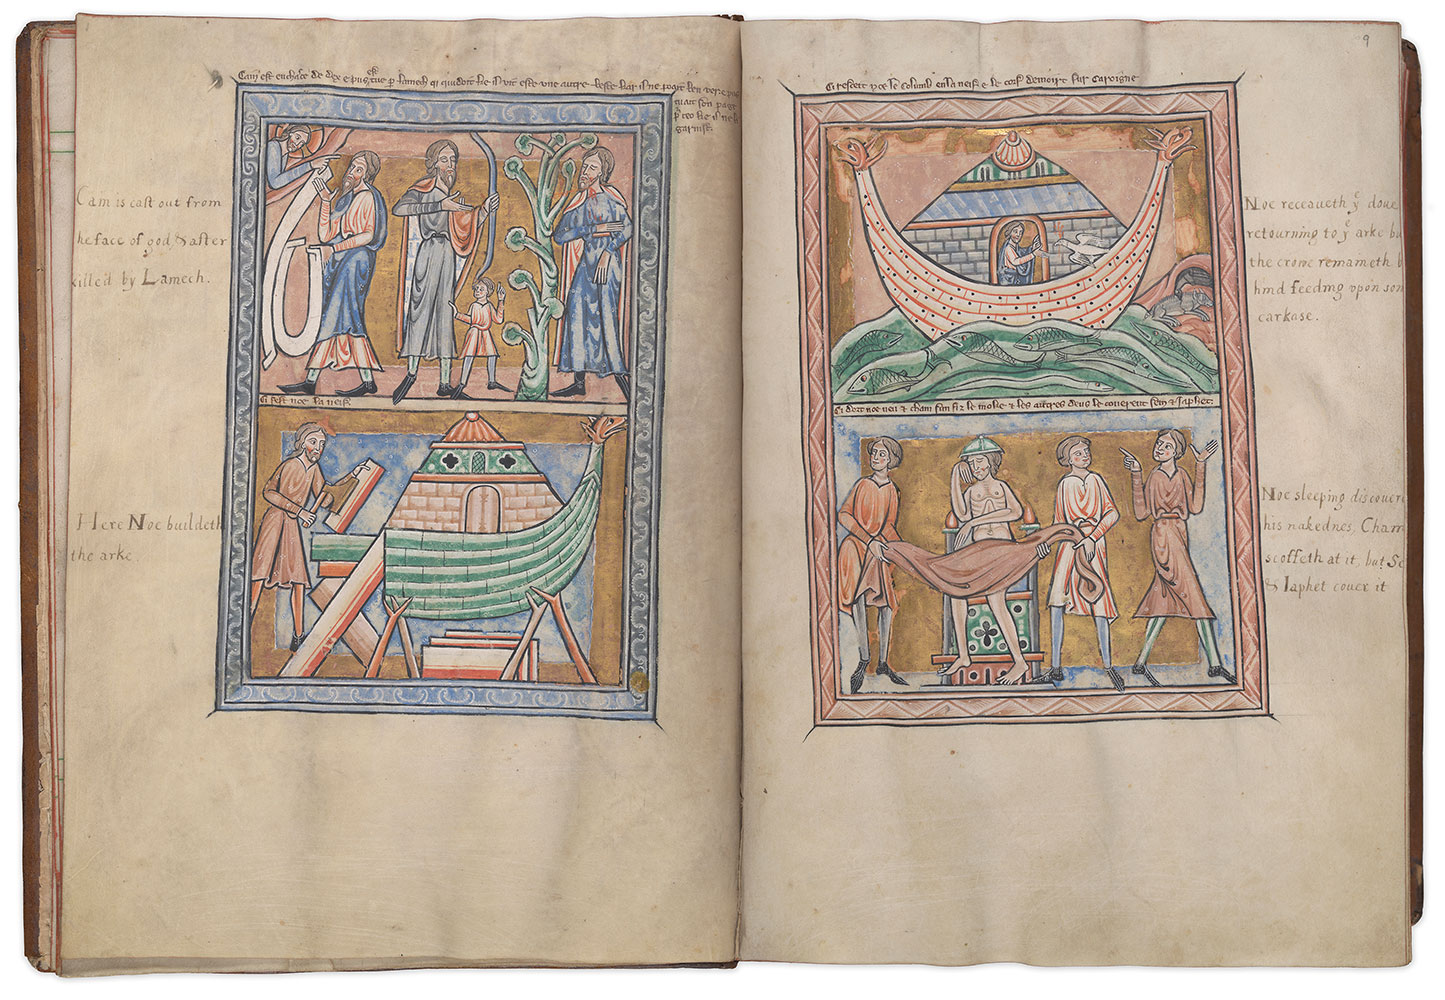 Caim est enchace de dex e pus est tue per lamech qi quidoit ke
tuait son page
garnist.
Cam is cast out from
the face of god & after
killed by Lamech.
Ci fest noe la neif.
Here Noe buildeth
the arke.
9
Ci resceit noe le columb en la neif e le corf demoirt sur caroigne
Noe receaueth yͤ doue
retourning to yͤ arke bu
the crowe remaineth b
hind feeding vpon som
carkase.
Ci dort noe neu & cham sun fiz le moke & les autres deus le couerent sem & Iaphet.
Noe sleeping discouere
his nakednes, Cham
scoffeth at it, but Se
& Iaphet couer it